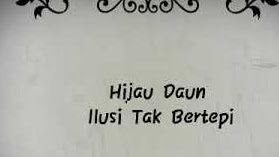 Hijau Daun
Ilusi Tak Bertepi